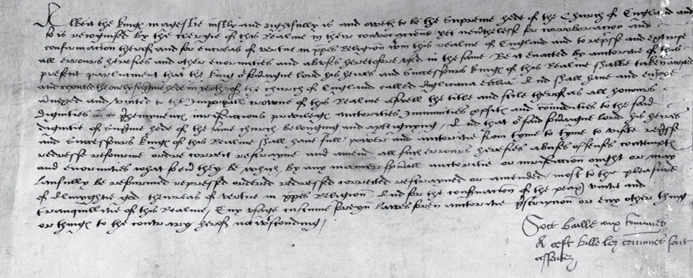 Albeit the Kings magestie justly and rightfully is and oweth to be the Supreme hede of the Churche of England and
so is recognised by the clergie of this Realme in their convocations yet neverthelesse for corroboracion and
confirmation therof and for encrease of vertue in xpes Religion wtin this realme of England and to represse and extirpe
all errours heresies and other enormities and abuses heretofore used in the same Be it enacted by auctorite of this
present parliament that the King or souveraigne lord his heires and successours Kings of this Realme shalbe taken accepted
and reputed the onely supreme hede in erthe of the church of England called Anglicana ecclesia And shall have and enjoye
annexed and united to the Imperyall crowne of this Realme aswell the title and stile therof as all honours
dignities preemynences jurisdictions privileges auctorities immunities profits and commodities to the said
dignitie of supreme hede of the same church belonging and apperteynyng And that or said souveraigne lord his heires
and successours kings of this Realme shall have full power and auctorite from tyme to tyme to visite represse
redresse refourme ordre correct restrayne and amend all such errours heresies abuses offenses contempts
and enormities what so ever they be which by any maner spuall auctorite or jurisdiction ought or may
laufully be refourmed repressed ordered redressed corrected restrayned or amended most to the pleasure
of Almightie god thencrease of vertue in xpes Religion And for the conservacion of the peax unitie and
tranquillitie of this Realme Any usage custume foreyn lawes foreyn auctorite prescripcion or eny other thing
or things to the contrary herof notwtstonding
Soit baille aux Comunes
A cest bille les comunes sont
assentez